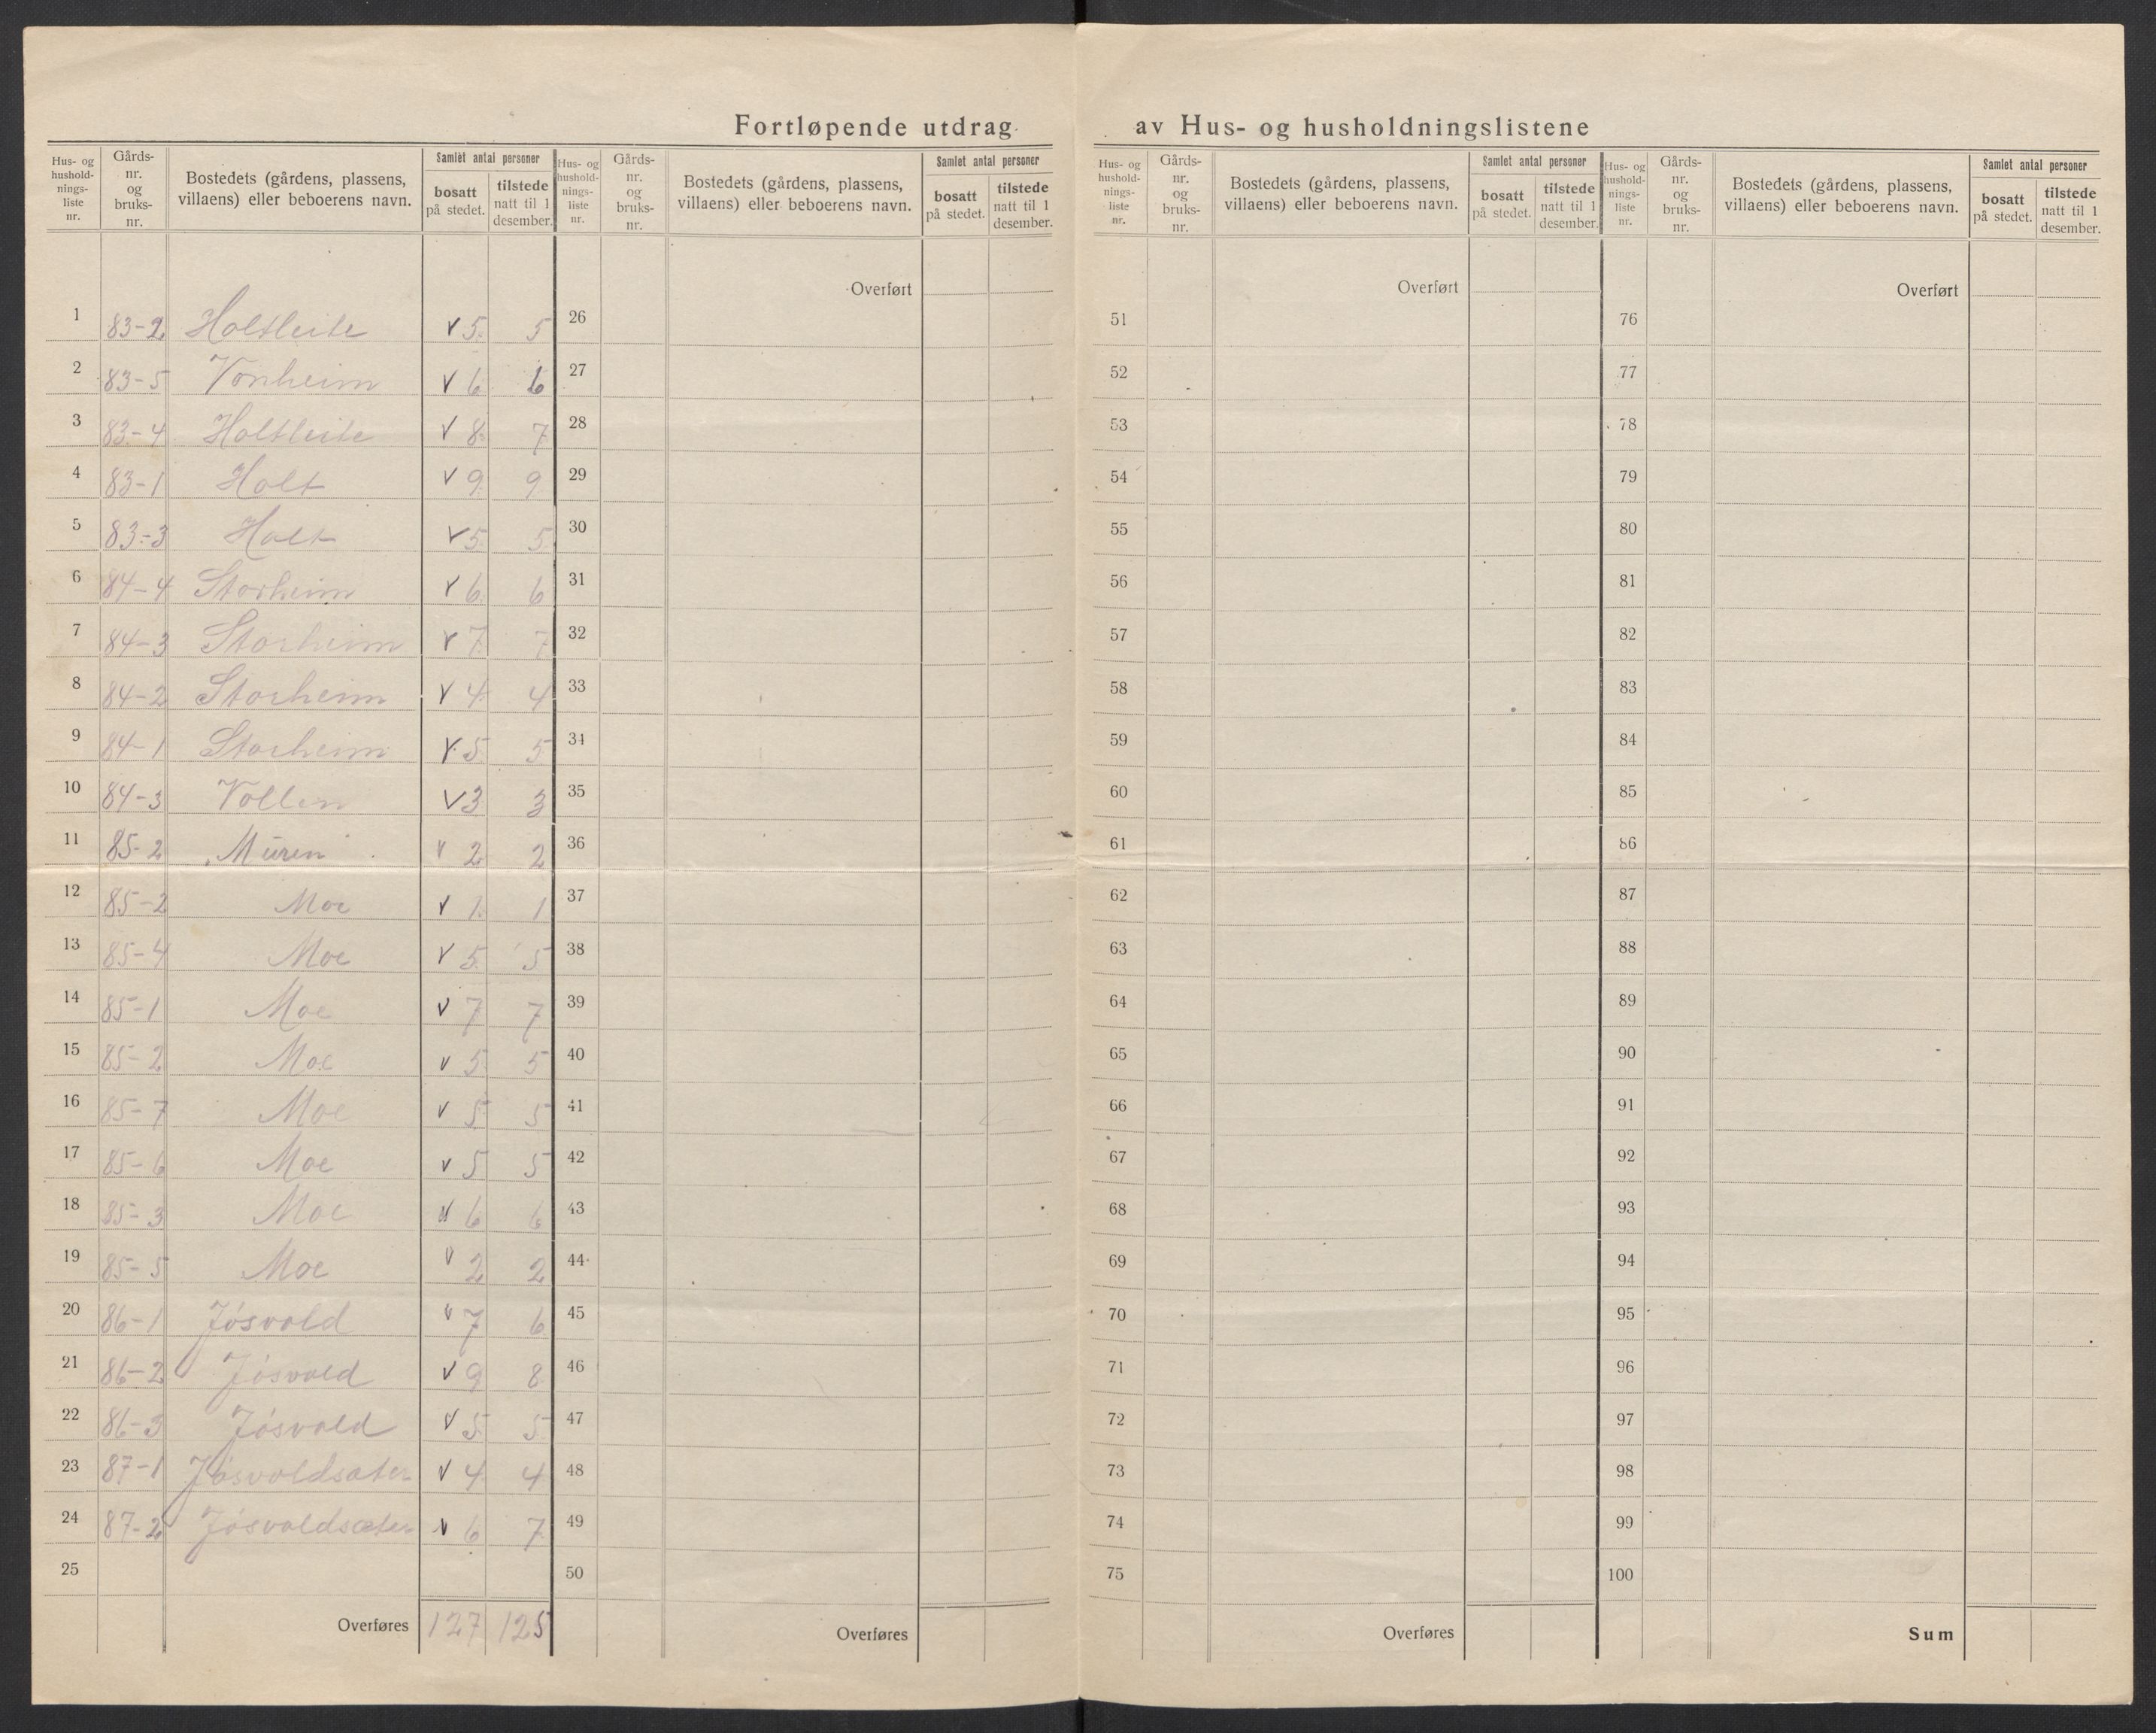 Fortløpende utdrag av Hus- og husholdningslistene
Hus- og hushold- nings- liste nr. | Gårds- nr. og bruks- nr. | Bostedets (gårdens, plassens, villaens) eller beboerens navn. | Samlet antal personer | bosatt på stedet. | tilstede natt til 1 desember.
1 83-2 Holtleite v 5 5
2 83-5 Vonheim v 6 6
3 83-4 Holtleite v 8 7
4 83-1 Holt v 9 9
5 83-3 Holt v 5 5
6 84-4 Storheim v 6 6
7 84-3 Storheim v 7 7
8 84-2 Storheim v 4 4
9 84-1 Storheim v 5 5
10 84-3 Vollen v 3 3
11 85-2 Muren v 2 2
12 85-2 Moe v 1 1
13 85-4 Moe v 5 5
14 85-1 Moe v 7 7
15 85-2 Moe v 5 5
16 85-7 Moe v 5 5
17 85-6 Moe v 5 5
18 85-3 Moe v 6 6
19 85-5 Moe v 2 2
20 86-1 Jósvold v 7 6
21 86-2 Jósvold v 9 8
22 86-3 Jósvold v 5 5
23 87-1 Jósvoldsæter v 4 4
24 87-2 Jósvoldsæter v 6 7
25
Overføres 127 125
Hus- og hushold- nings- liste nr. | Gårds- nr. og bruks- nr. | Bostedets (gårdens, plassens, villaens) eller beboerens navn. | Samlet antal personer | bosatt på stedet. | tilstede natt til 1 desember.
Overført
26
27
28
29
30
31
32
33
34
35
36
37
38
39
40
41
42
43
44
45
46
47
48
49
50
Overføres
Hus- og hushold- nings- liste nr. | Gårds- nr. og bruks- nr. | Bostedets (gårdens, plassens, villaens) eller beboerens navn. | Samlet antal personer | bosatt på stedet. | tilstede natt til 1 desember.
Overført
51
52
53
54
55
56
57
58
59
60
61
62
63
64
65
66
67
68
69
70
71
72
73
74
75
Overføres
Hus- og hushold- nings- liste nr. | Gårds- nr. og bruks- nr. | Bostedets (gårdens, plassens, villaens) eller beboerens navn. | Samlet antal personer | bosatt på stedet. | tilstede natt til 1 desember.
Overført
76
77
78
79
80
81
82
83
84
85
86
87
88
89
90
91
92
93
94
95
96
97
98
99
100
Sum